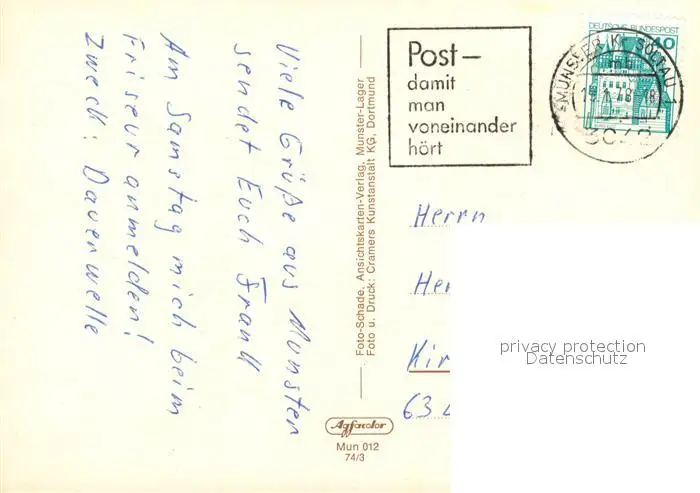 Viele Grüße aus Munster
sendet Euch Frank
Am Samstag mich beim
Friseur anmelden!
Zweck: Dauerwelle
Foto-Schade, Ansichtskarten-Verlag, Munster-Lager
Foto u. Druck: Cramers Kunstanstalt KG, Dortmund
Agfacolor
Mun 012
74/3
Post –
damit
man
voneinander
hört
DEUTSCHE BUNDESPOST
40
MUNSTER, K. SOLTAU 1
mb
Herrn
Her
Kir
63
privacy protection
Datenschutz